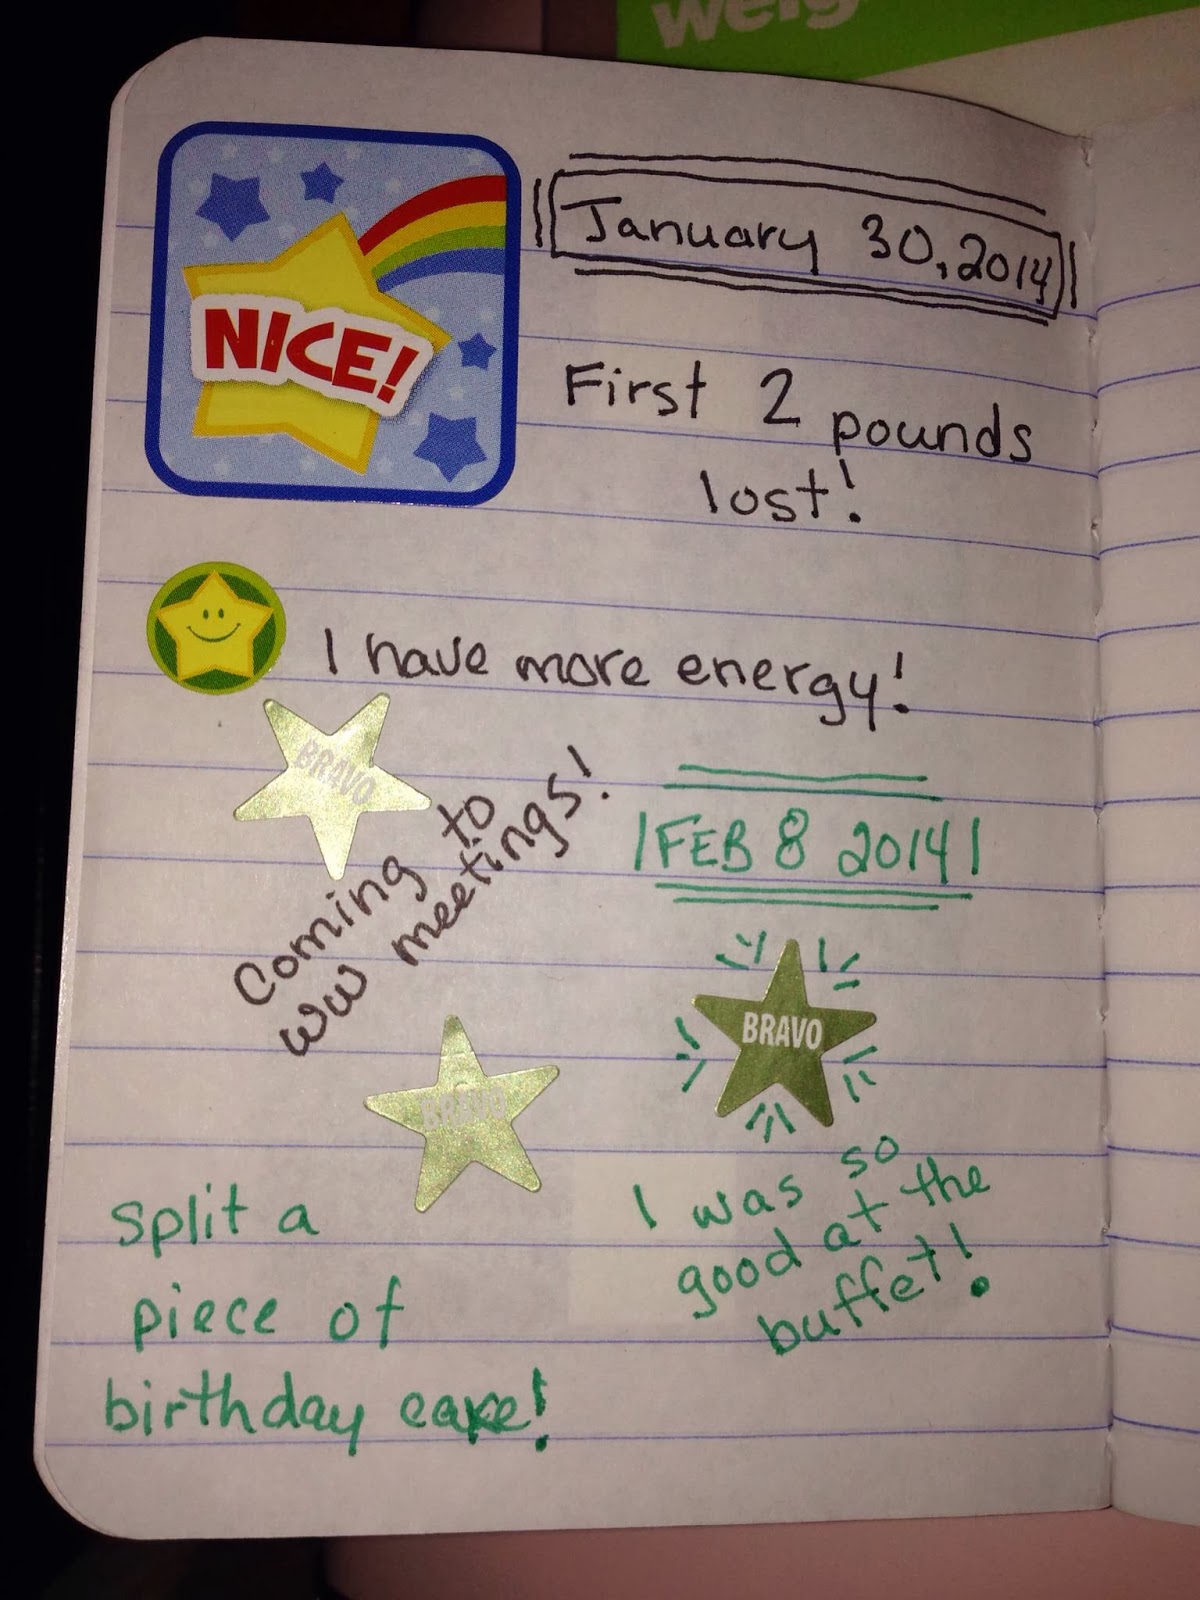 weig
NICE!
January 30, 2014
First 2 pounds
lost!
I have more energy!
BRAVO
Coming to
WW meetings!
FEB 8 2014
BRAVO
BRAVO
I was so
good at the
buffet!
Split a
piece of
birthday cake!